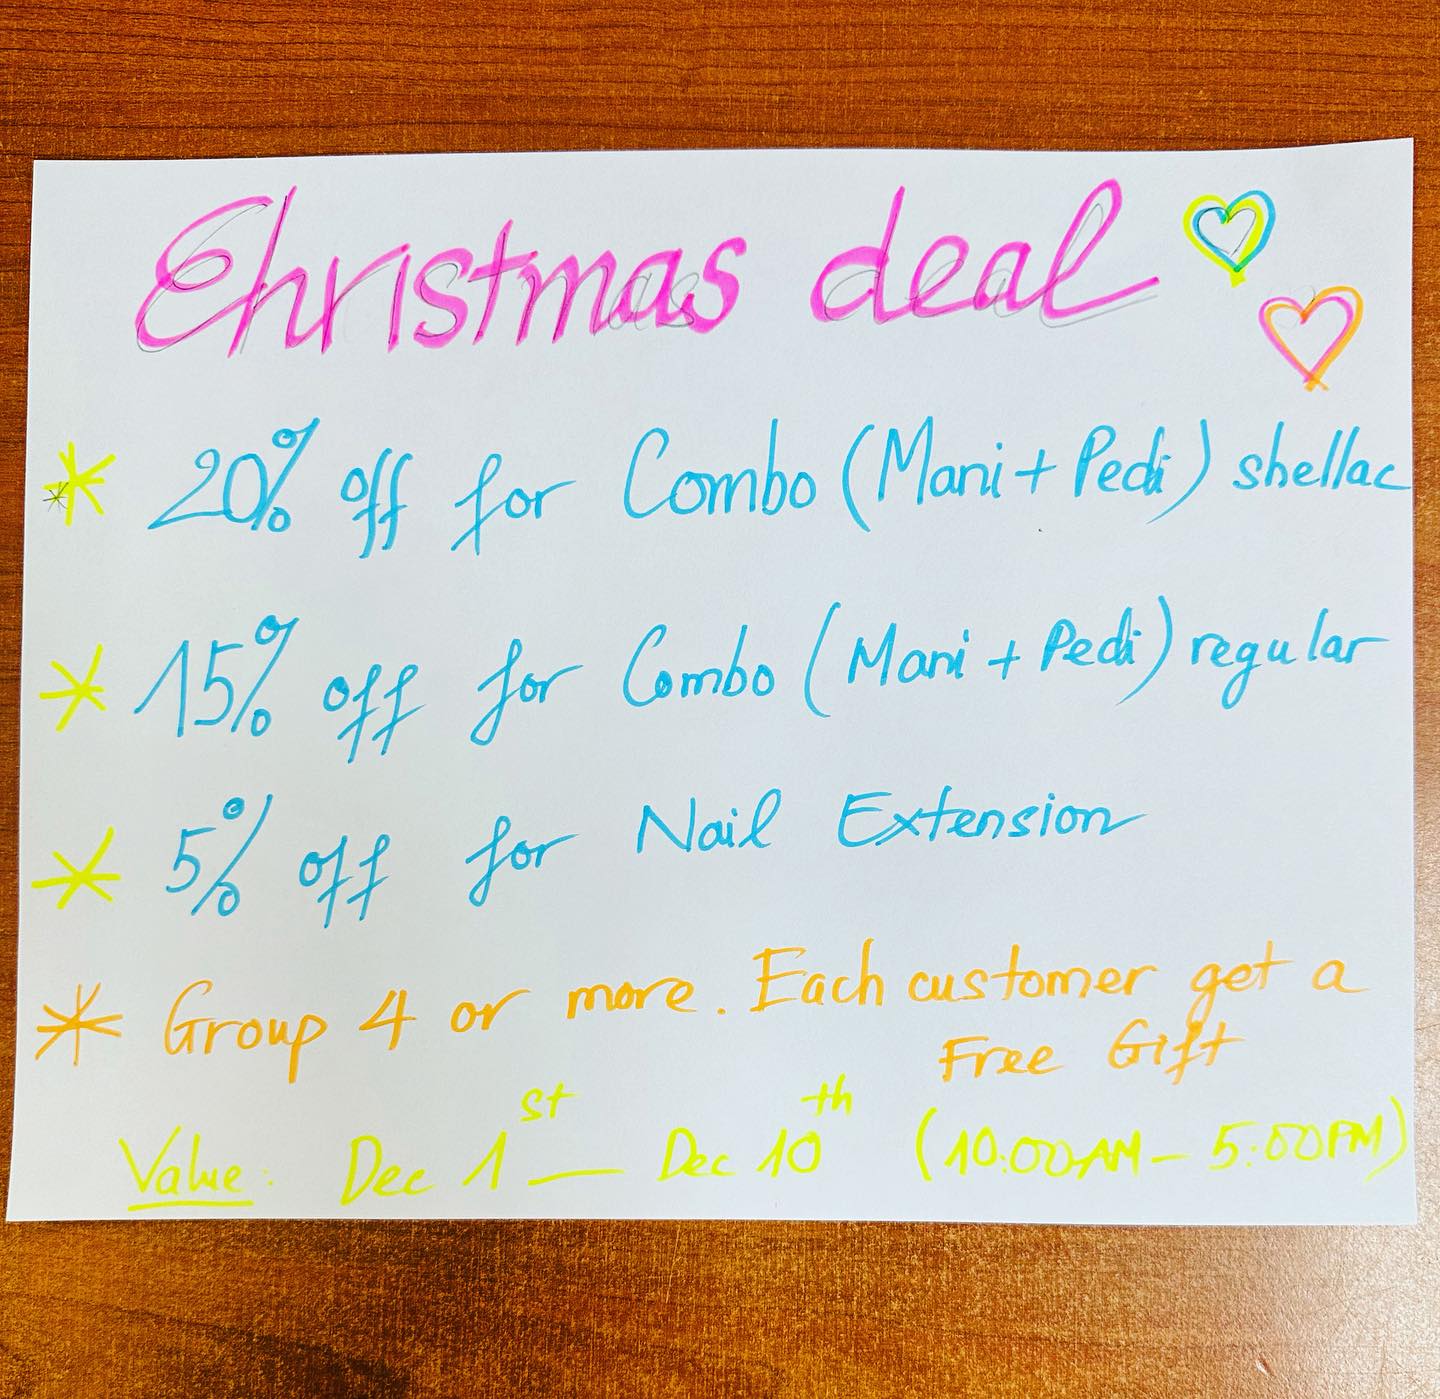 Christmas deal
* 20% off for Combo (Mani + Pedi) shellac
* 15% off for Combo (Mani + Pedi) regular
* 5% off for Nail Extension
* Group 4 or more. Each customer get a
Free Gift
Value: Dec 1st — Dec 10th (10:00AM - 5:00PM)